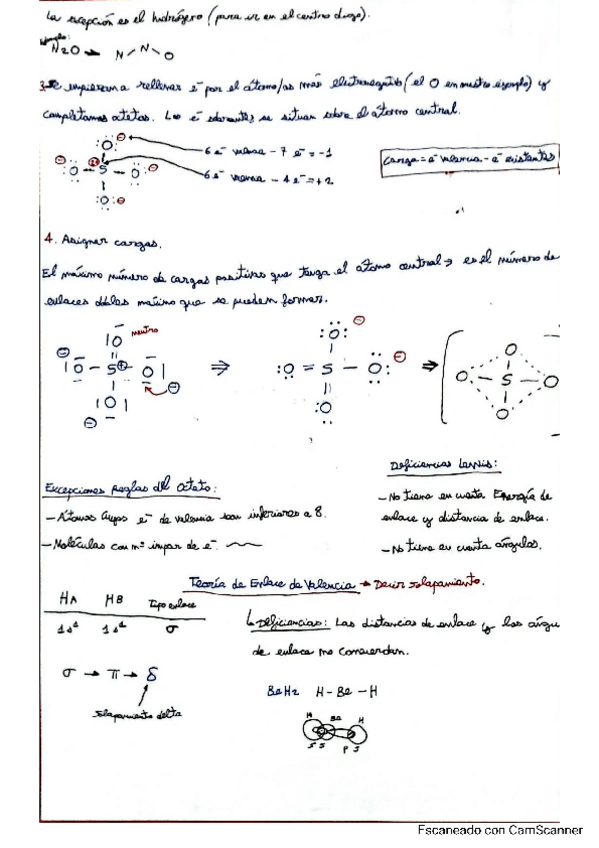 La excepción es el hidrógeno (para ir en el centro digo).
Ejemplo:
N2O → N N O
3. Se empiezan a rellenar e⁻ por el átomo/os más electronegativo (el O en nuestro ejemplo) y
completamos octetos. Los e⁻ sobrantes se situan sobre el átomo central.
6 e⁻ valencia - 7 e⁻ = -1
6 e⁻ valencia - 4 e⁻ = +2
Carga = e⁻ valencia - e⁻ existentes
O
O - S - O
O
4. Asignar cargas.
El máximo número de cargas positivas que tenga el átomo central → es el número de
enlaces dobles máximo que se pueden formar.
neutro
O
O - S - O
O
⇒
O
O = S - O
O
⇒
O
O - S - O
O
Deficiencias Lewis:
- No tiene en cuenta Energía de
enlace y distancia de enlace.
- No tiene en cuenta ángulos.
Excepciones Reglas del octeto:
- Átomos cuyos e⁻ de valencia son inferiores a 8.
- Moléculas con nº impar de e⁻.
Teoría de Enlace de Valencia → Decir solapamiento.
HA HB Tipo enlace
1s¹ 1s¹ σ
Deficiencias: Las distancias de enlace y los ángu
de enlace no concuerdan.
σ → π → δ
solapamiento delta
BeH2 H - Be - H
H Be H
s s p s
Escaneado con CamScanner